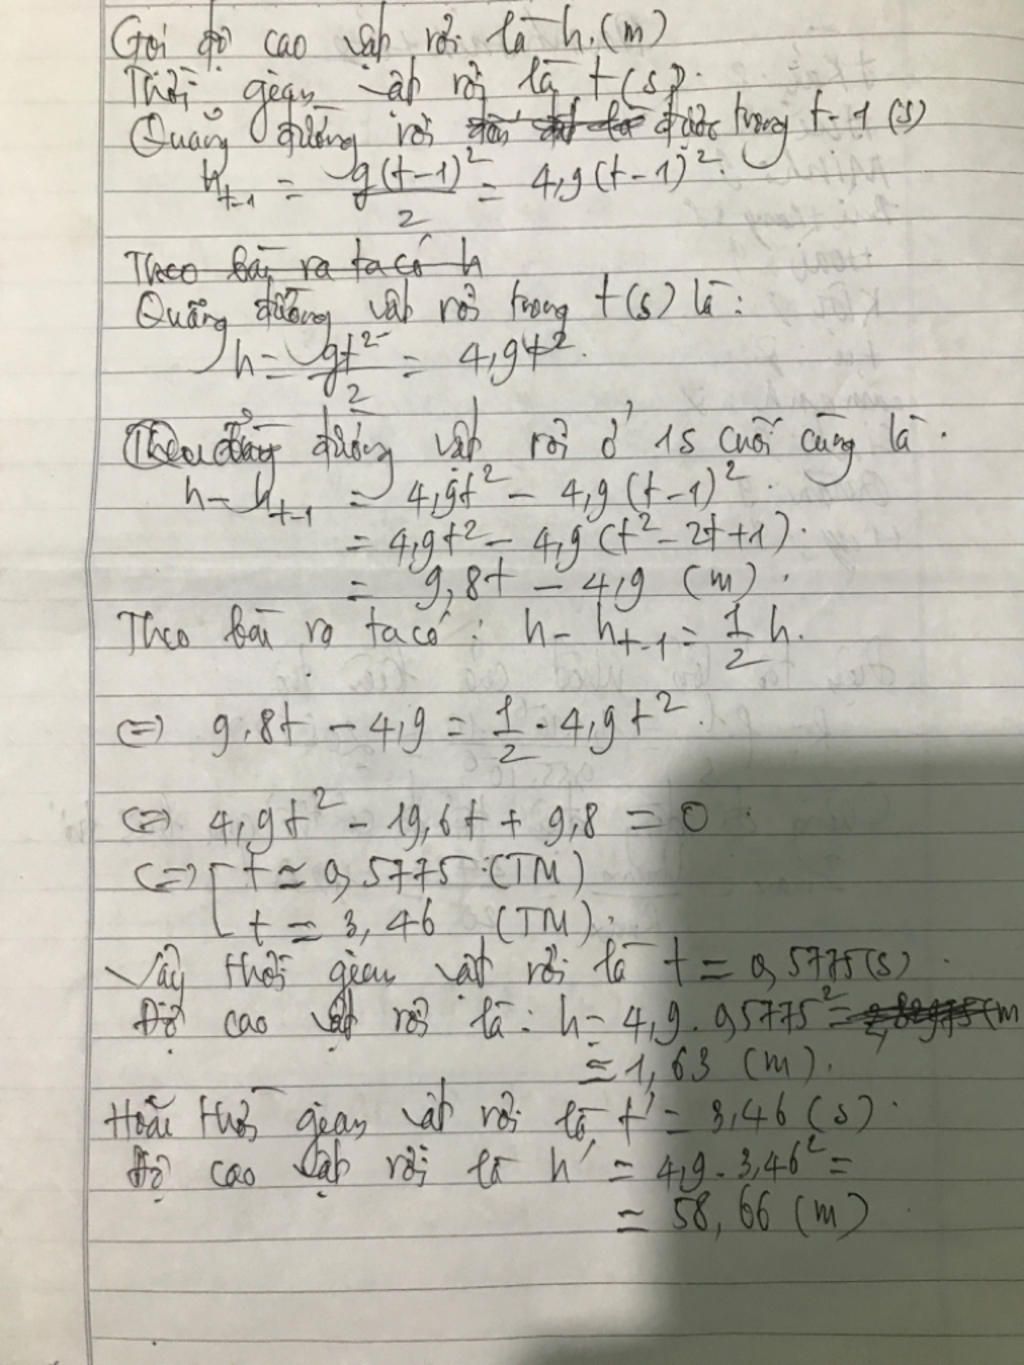 Gọi độ cao vật rơi là h (m)
Thời gian vật rơi là t (s).
Quãng đường rơi được trong t-1 (s)
h_{t-1} = \frac{g(t-1)^2}{2} = 4,9(t-1)^2.
Theo bài ra ta có h
Quãng đường vật rơi trong t(s) là:
h = \frac{gt^2}{2} = 4,9t^2.
đường vật rơi ở 1s cuối cùng là.
h - h_{t-1} = 4,9t^2 - 4,9(t-1)^2.
= 4,9t^2 - 4,9(t^2 - 2t + 1).
= 9,8t - 4,9 (m).
Theo bài ra ta có: h - h_{t-1} = \frac{1}{2} h.
(=) 9,8t - 4,9 = \frac{1}{2} . 4,9t^2.
(=) 4,9t^2 - 19,6t + 9,8 = 0.
(=) [ t ≃ 0,5775 (TM)
t = 3,46 (TM).
Vậy thời gian vật rơi là t = 0,5775(s).
Độ cao vật rơi là: h = 4,9 . 0,5775^2 =
= 1,63 (m).
Hoặc thời gian vật rơi là t' = 3,46 (s).
Độ cao vật rơi là h' = 4,9 . 3,46^2 =
= 58,66 (m)